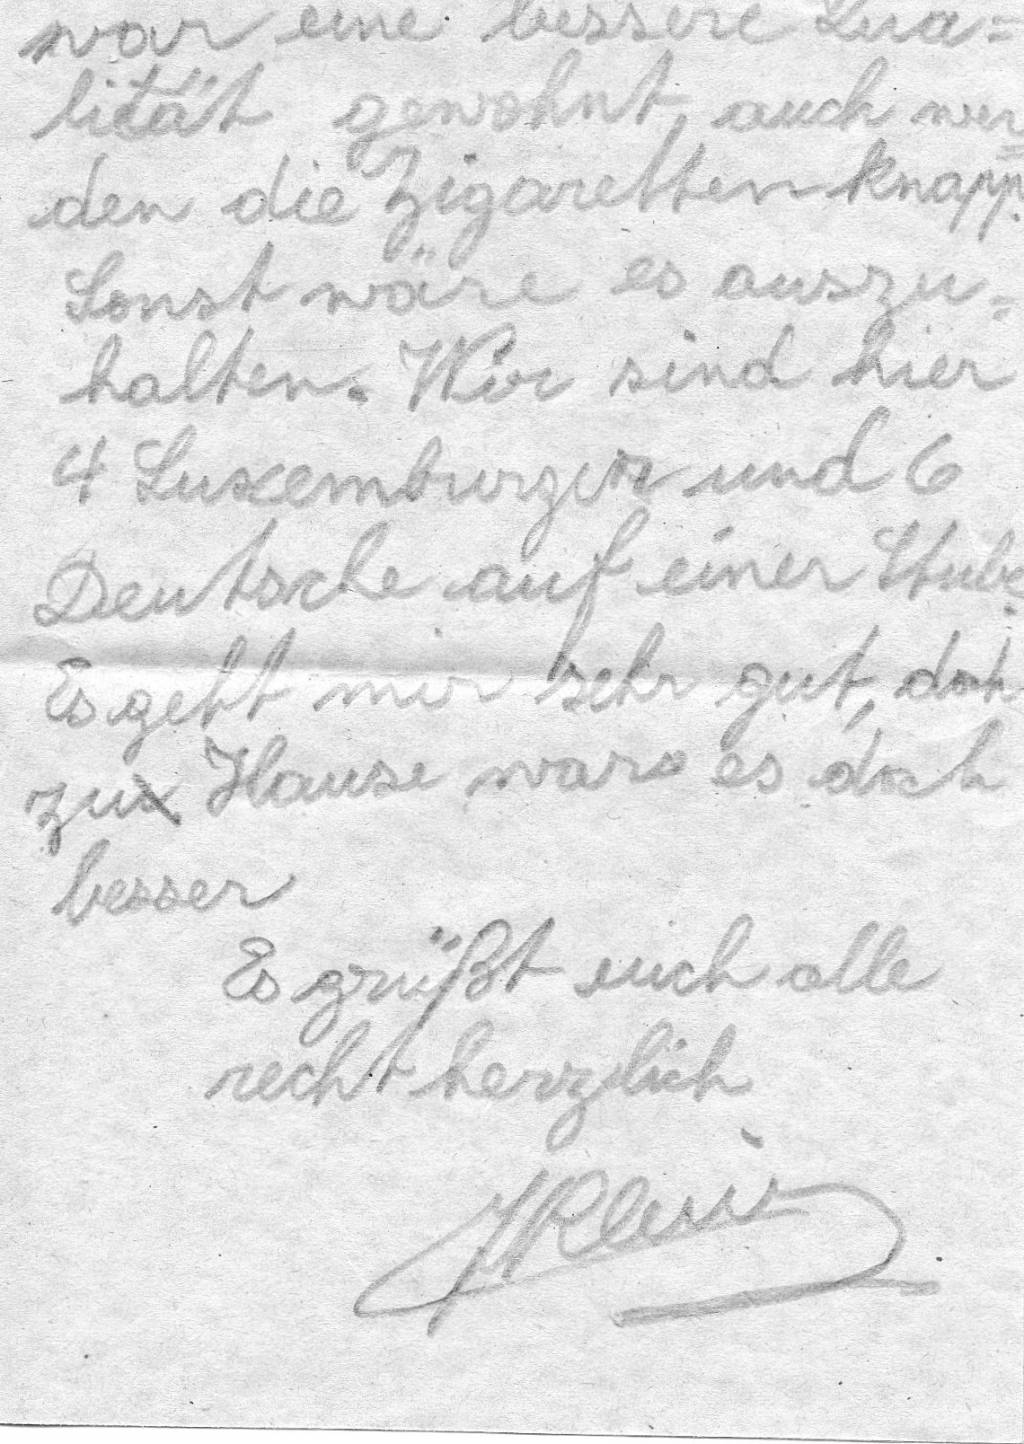 war eine bessere Qua=
lität gewohnt, auch wer=
den die Zigaretten knapp.
Sonst wäre es auszu=
halten. Wir sind hier
4 Luxemburger und 6
Deutsche auf einer Stube.
Es geht mir sehr gut, doch
zu Hause ware es doch
besser
Es grüßt euch alle
recht herzlich